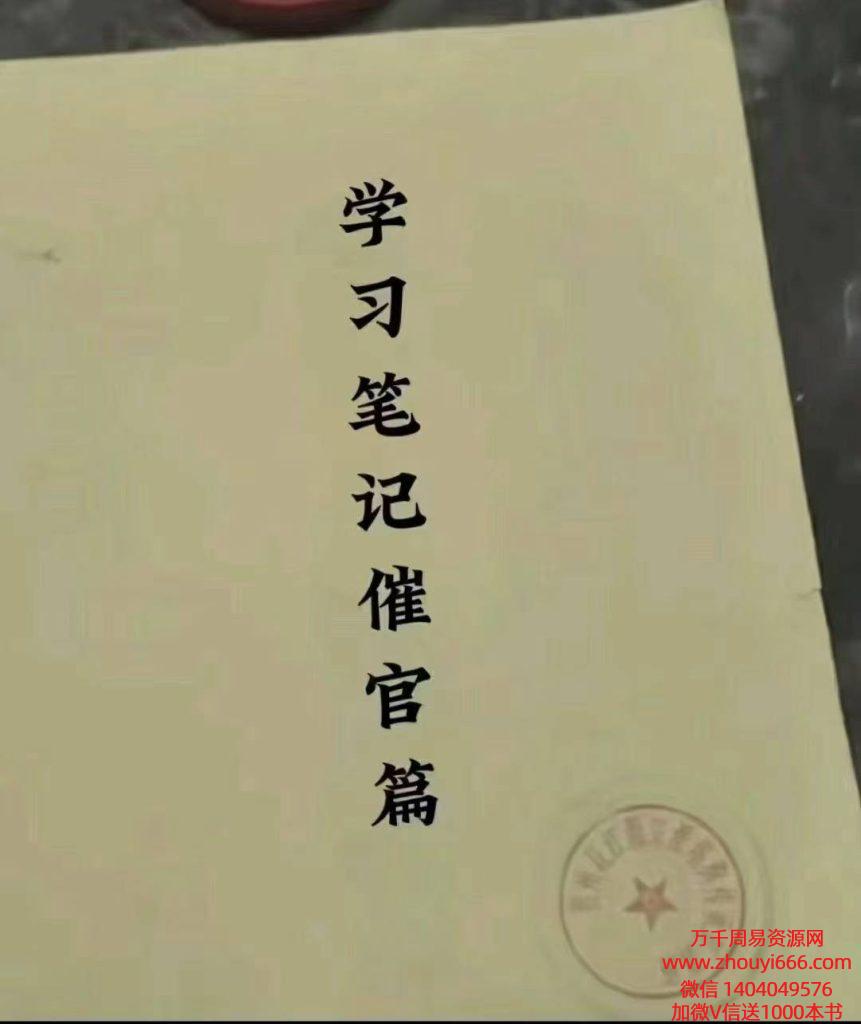 学习笔记催官篇
万千周易资源网
www.zhouyi666.com
微信 1404049576
加微V信送1000本书